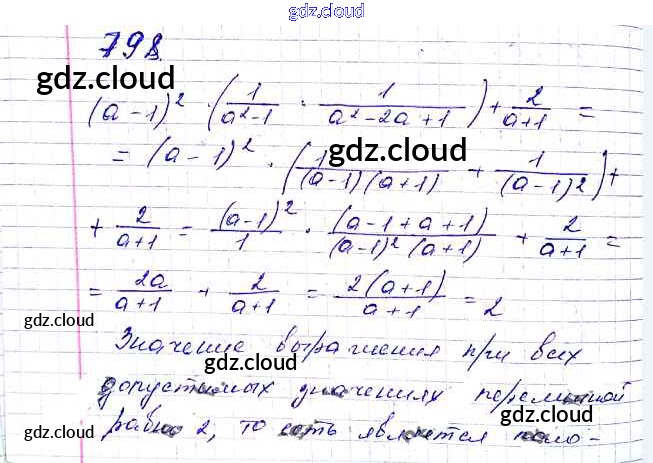 gdz.cloud
798
gdz.cloud
(a-1)² · (1/(a²-1) + 1/(a²-2a+1)) + 2/(a+1) =
= (a-1)² · (1/((a-1)(a+1)) + 1/(a-1)²) +
gdz.cloud
+ 2/(a+1) = (a-1)²/1 · (a-1+a+1)/((a-1)²(a+1)) + 2/(a+1) =
= 2a/(a+1) + 2/(a+1) = 2(a+1)/(a+1) = 2
gdz.cloud
Значение выражения при всех
gdz.cloud
допустимых значениях переменной
gdz.cloud
равно 2, то есть является поло-
gdz.cloud